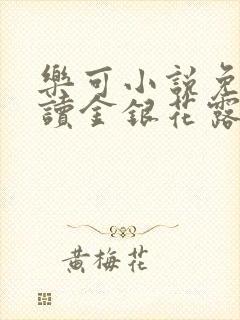 樂可小說免
讀金銀花露
黃梅花